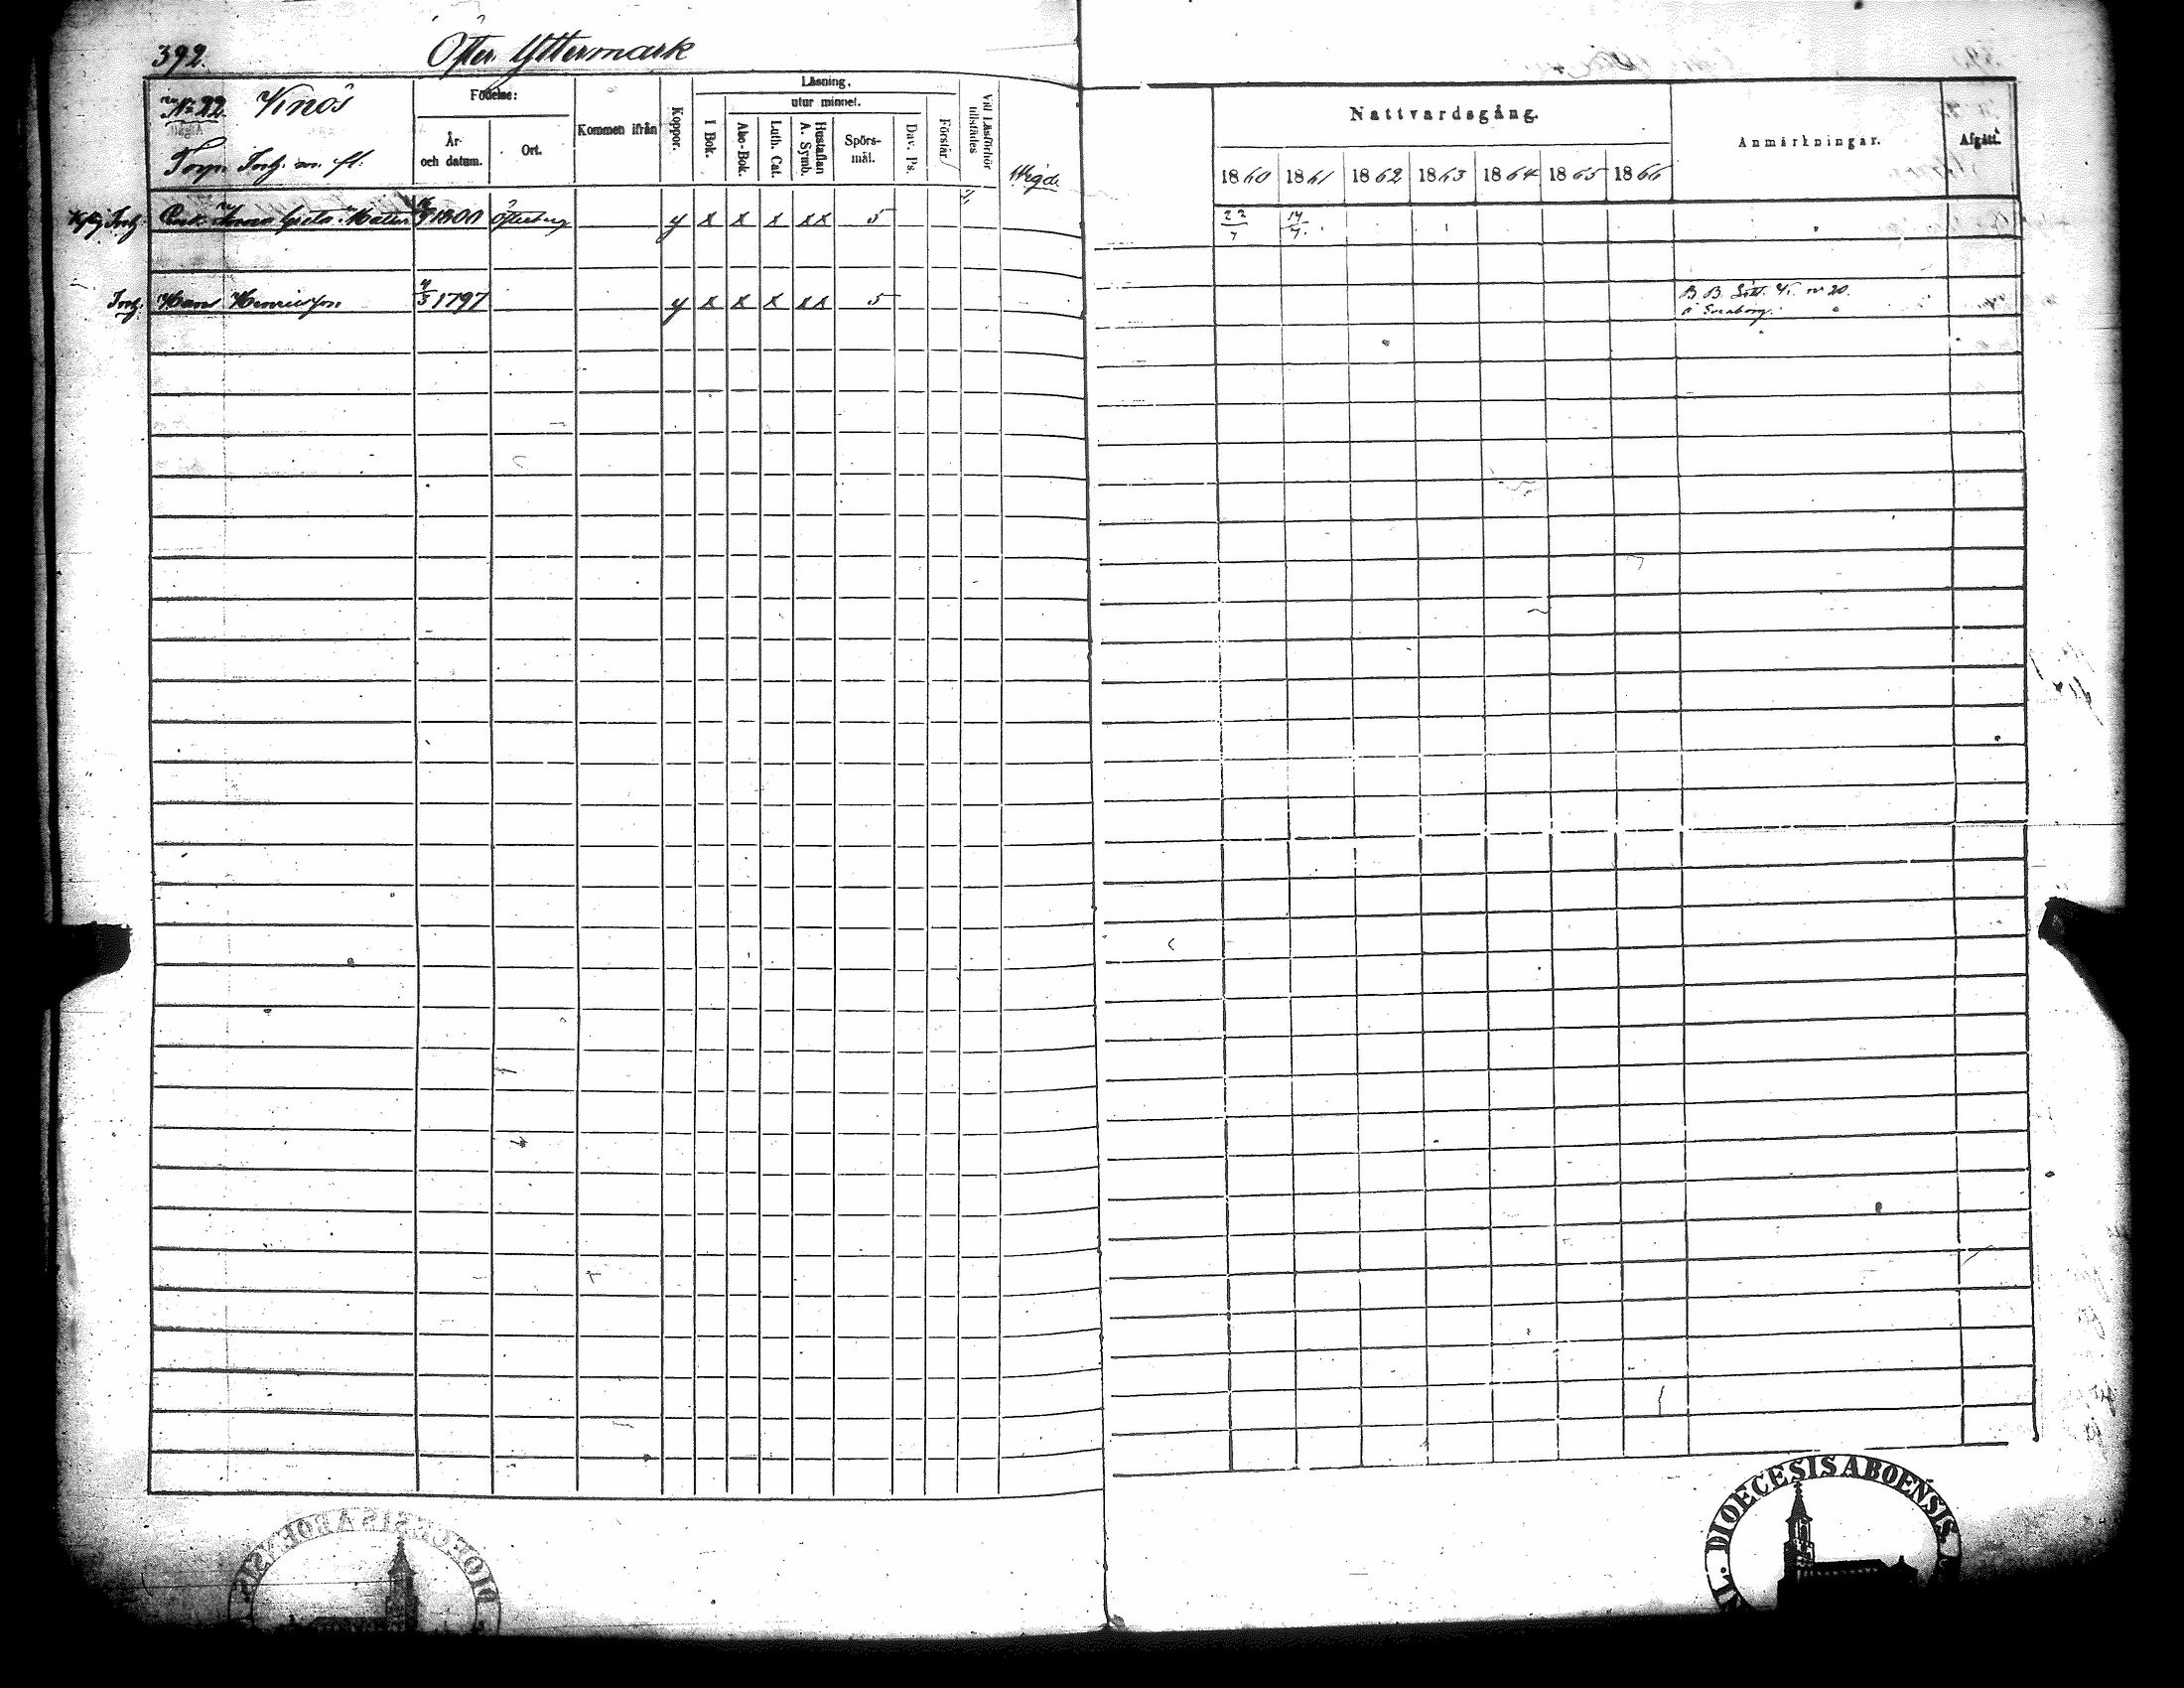 392.
Öfter Yttermark
No 22. Knös
Torp. Torp. m. fl.
Födelse:
År- och datum.
Ort.
Kommen ifrån
Koppor.
Läsning.
I Bok.
utur minnet.
Abc-Bok.
Luth. Cat.
Hustaflan A. Symb.
Spörs-mål.
Dav. Ps.
Förstår
Vid Läsförhör tillstädes
Wigde
Enk. Anna Greta Matts 1801 Öfterberg y x x x xx 5
Torp. Hans Henricsson 4/3 1797 y x x x xx 5
Nattvardsgång.
1860 1861 1862 1863 1864 1865 1866
Anmärkningar.
Afgått.
22/7 14/7
B. B. no 20.
å Sveaborg.
DIOECESIS ABOENSIS